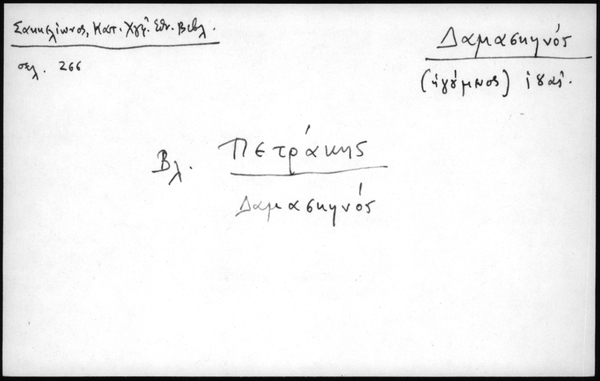 Σακκελίωνος, Κατ. Χγρ. Εθν. Βιβλ.
σελ. 266
Δαμασκηνός
(ηγούμενος) ιατ.
Βλ. Πετράκης
Δαμασκηνός